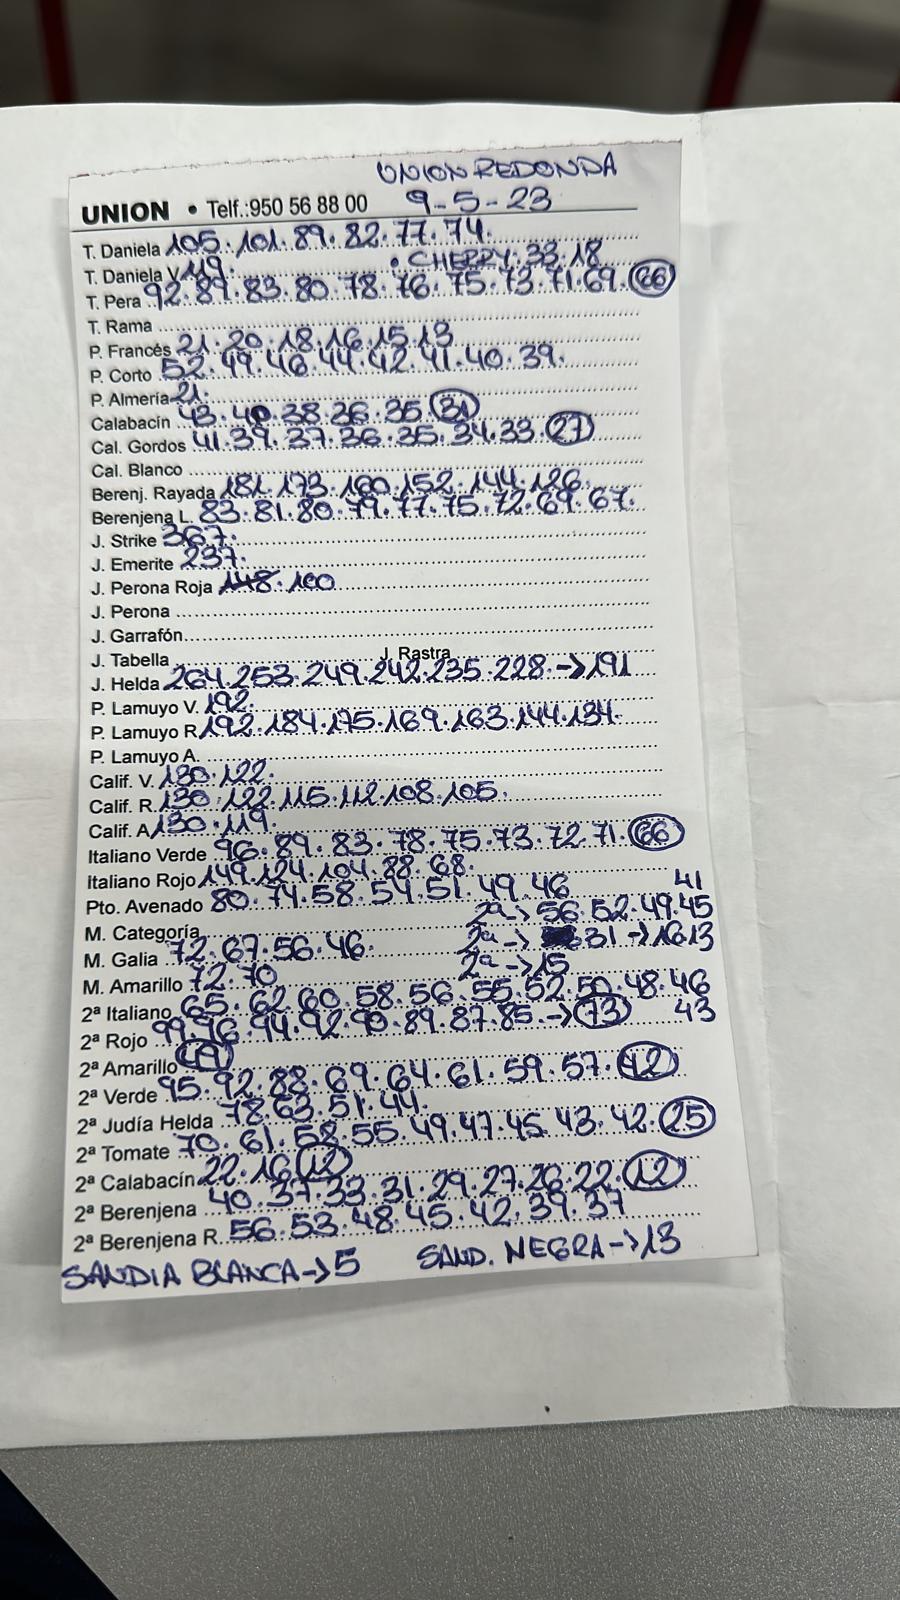 UNION REDONDA
UNION • Telf.:950 56 88 00 9-5-23
T. Daniela 105. 101. 89. 82. 77. 74.
T. Daniela V 119. • CHERRY. 33. 18
T. Pera 92. 87. 83. 80. 78. 76. 75. 73. 71. 69. 66
T. Rama
P. Francés 21. 20. 18. 16. 15. 13
P. Corto 52. 49. 46. 44. 42. 41. 40. 39.
P. Almería 21.
Calabacín 43. 40. 38. 36. 35. 31
Cal. Gordos 41. 39. 37. 36. 35. 34. 33. 27
Cal. Blanco
Berenj. Rayada 181. 173. 160. 152. 144. 126.
Berenjena L. 83. 81. 80. 79. 77. 75. 72. 69. 67.
J. Strike 367.
J. Emerite 237.
J. Perona Roja 148. 100
J. Perona
J. Garrafón
J. Tabella J. Rastra
J. Helda 264. 253. 249. 242. 235. 228. -> 191
P. Lamuyo V. 192.
P. Lamuyo R 192. 184. 175. 169. 163. 144. 134.
P. Lamuyo A.
Calif. V. 130. 122.
Calif. R. 130. 122. 115. 112. 108. 105.
Calif. A 130. 119.
Italiano Verde 96. 89. 83. 78. 75. 73. 72. 71. 66
Italiano Rojo 149. 124. 104. 88. 68.
Pto. Avenado 80. 74. 58. 54. 51. 49. 46 41
M. Categoría 2ª -> 56. 52. 49. 45
M. Galia 72. 67. 56. 46. 2ª -> 31 -> 16. 13
M. Amarillo 72. 70 2ª -> 15
2ª Italiano 65. 62. 60. 58. 56. 55. 52. 50. 48. 46
2ª Rojo 99. 96. 94. 92. 90. 89. 87. 85. -> 73 43
2ª Amarillo
2ª Verde 95. 92. 88. 69. 64. 61. 59. 57. 42
2ª Judía Helda 78. 63. 51. 44.
2ª Tomate 70. 61. 58. 55. 49. 47. 45. 43. 42. 25
2ª Calabacín 22. 16. 12
2ª Berenjena 40. 37. 33. 31. 29. 27. 26. 22. 12
2ª Berenjena R. 56. 53. 48. 45. 42. 39. 37
SANDIA BLANCA -> 5 SAND. NEGRA -> 13